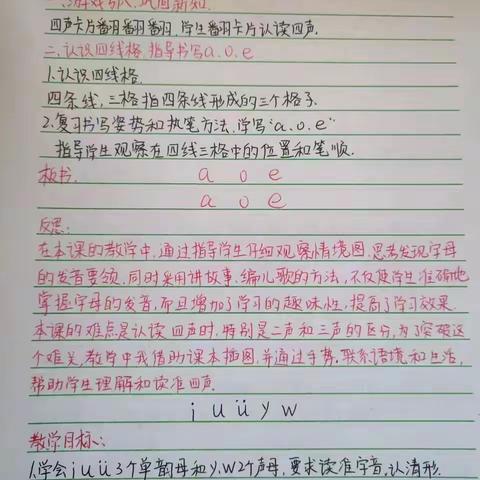 一、游戏引入,巩固新知.
四声卡片翻翻翻翻,学生翻翻卡片认读四声.
二、认识四线格,指导书写a、o、e
1.认识四线格.
四条线,三格指四条线形成的三个格子.
2.复习书写姿势和执笔方法,学写"a、o、e"
指导学生观察在四线三格中的位置和笔顺.
板书. a o e
a o e
反思:
在本课的教学中,通过指导学生仔细观察情境图,思考发现字母
的发音要领,同时采用讲故事、编儿歌的方法,不仅使学生准确地
掌握字母的发音,而且增加了学习的趣味性,提高了学习效果.
本课的难点是认读四声时,特别是二声和三声的区分,为了突破这
个难关,教学中我借助课本插图,并通过手势,联系语境和生活,
帮助学生理解和读准四声.
i u ü y w
教学目标:
1.学会i u ü 3个单韵母和y、w2个声母,要求读准字音,认清形.